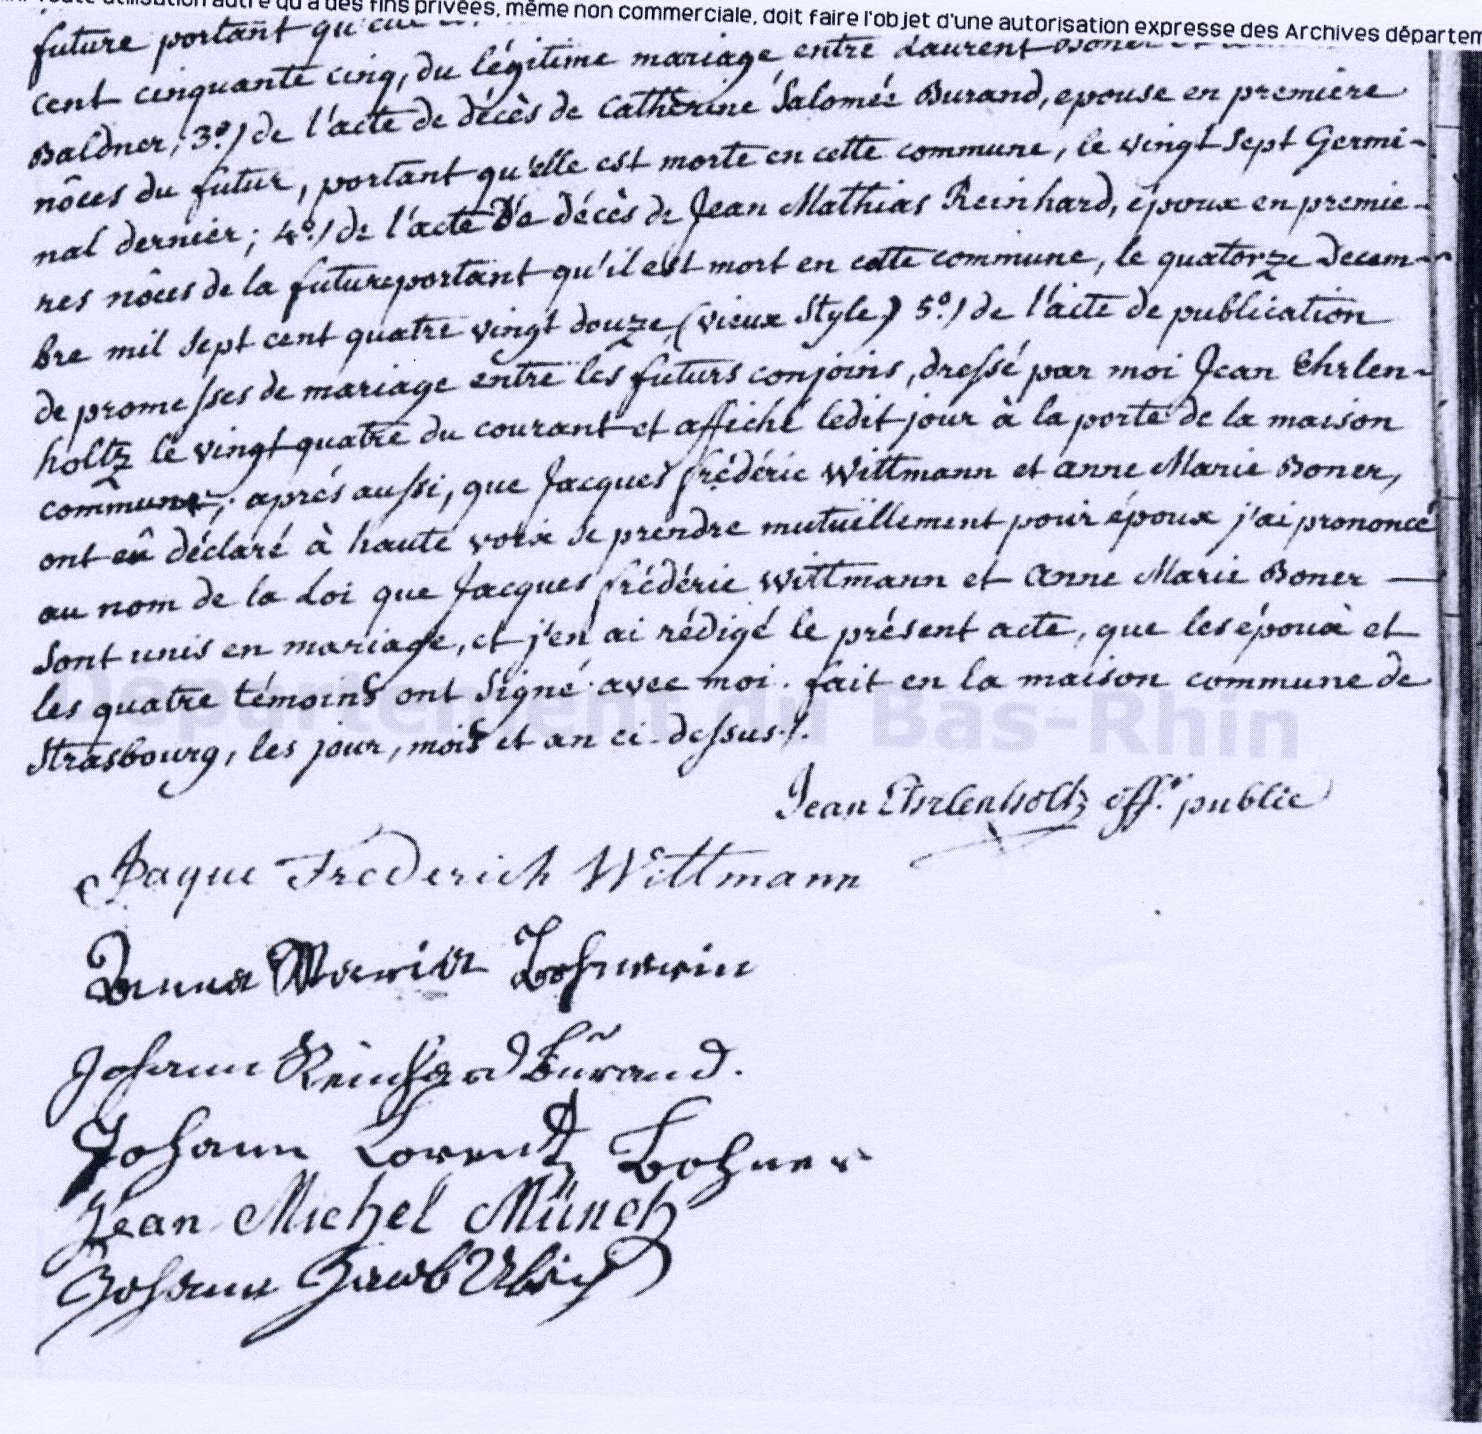 toute utilisation autre qu'à des fins privées, même non commerciale, doit faire l'objet d'une autorisation expresse des Archives départem
future portant qu'elle
cent cinquante cinq, du légitime mariage entre Laurent Boner
Baldner; 3º) de l'acte de décès de Cathérine Salomée Burand, epouse en premiere
nôces du futur, portant qu'elle est morte en cette commune, le vingt sept Germi-
nal dernier; 4º) de l'acte de décès de Jean Mathias Reinhard, époux en premie-
res nôces de la future portant qu'il est mort en cette commune, le quatorze Decem-
bre mil sept cent quatre vingt douze (vieux Style) 5º) de l'acte de publication
de promesses de mariage entre les futurs conjoins, dressé par moi Jean Ehrlen-
holtz le vingt quatre du courant et affiché ledit jour à la porte de la maison
commune; aprés aussi, que Jacques frédéric Wittmann et anne Marie Boner,
ont eû déclaré à haute voix se prendre mutuëllement pour époux j'ai prononcé
au nom de la Loi que Jacques frédéric Wittmann et Anne Marie Boner —
Sont unis en mariage, et j'en ai rédigé le présent acte, que les époux et
les quatre témoins ont Signé avec moi. fait en la maison commune de
Département du Bas-Rhin
Strasbourg, les jour, mois et an ci-dessus ./.
Jean Ehrlenholtz off. public
Jaque Frederich Wittmann
Anna Maria Bohnerin
Johann Reinhard Burand.
Johann Lorentz Bohner
Jean Michel Münch
Johann Jacob Ulrich